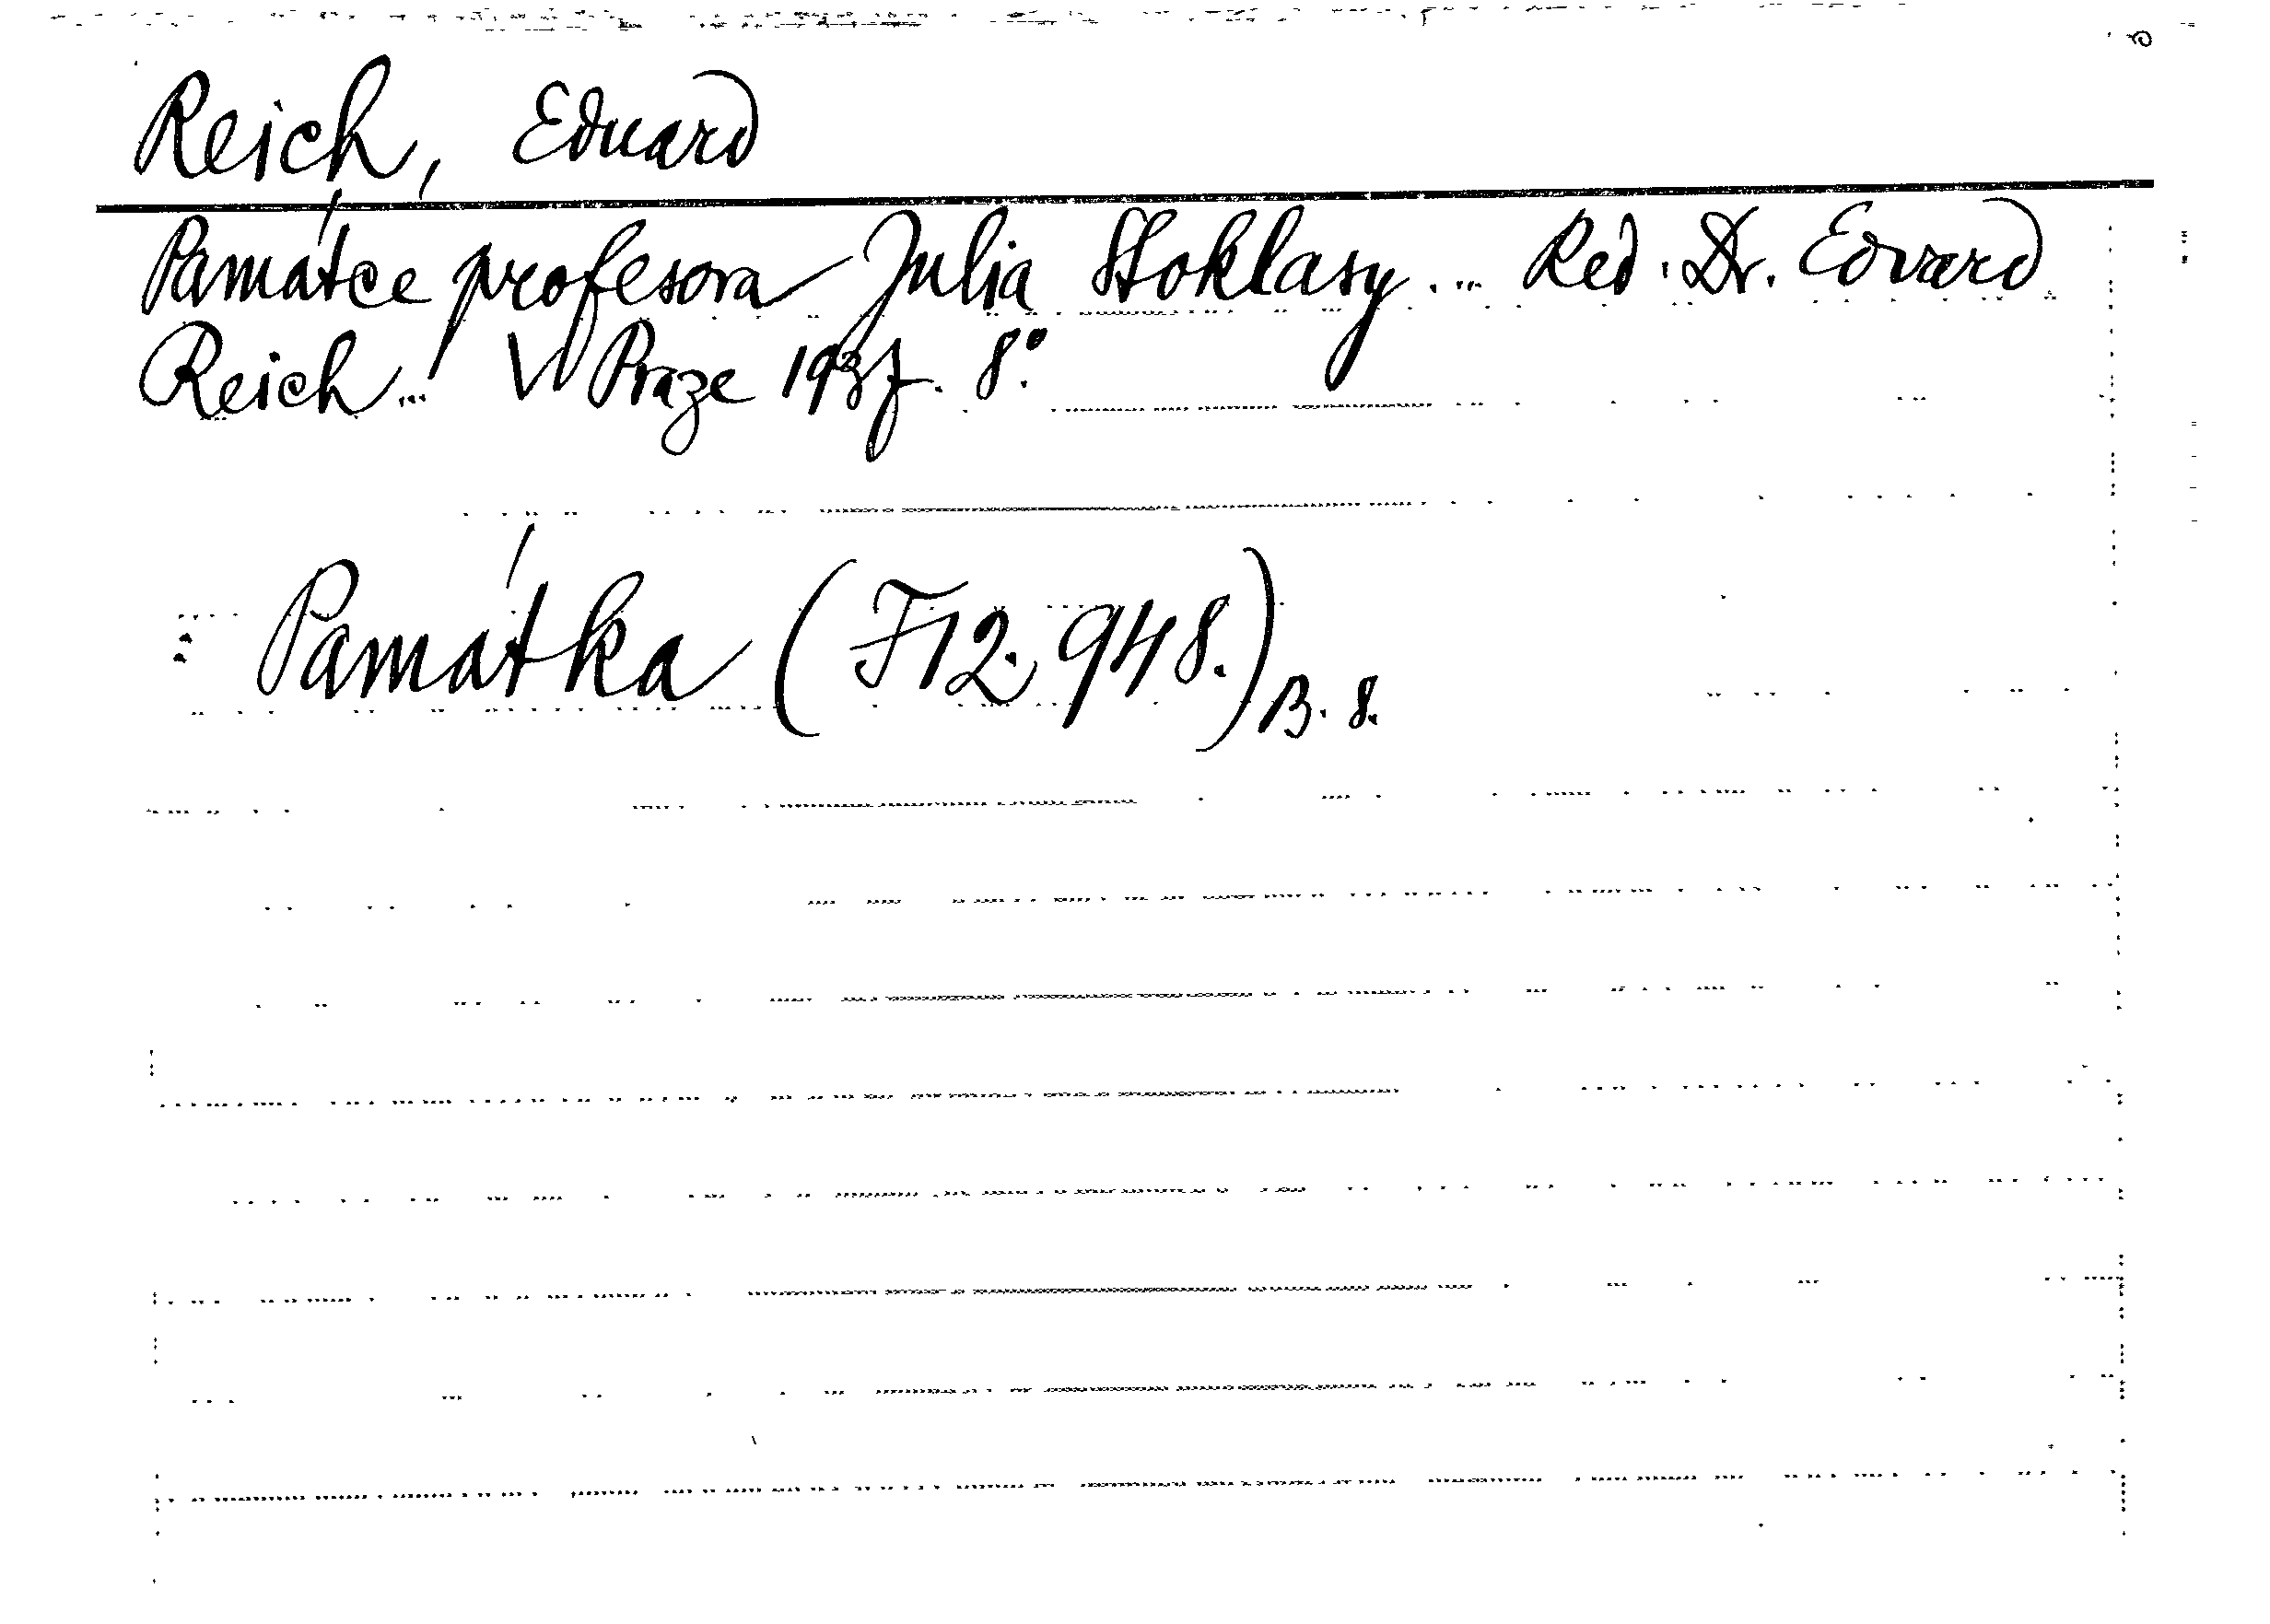 Reich, Eduard
Památce profesora Julia Stoklasy.... Red. Dr. Edvard
Reich... V Praze 1937. 8°.
Památka (F 12.948.) B. 8.